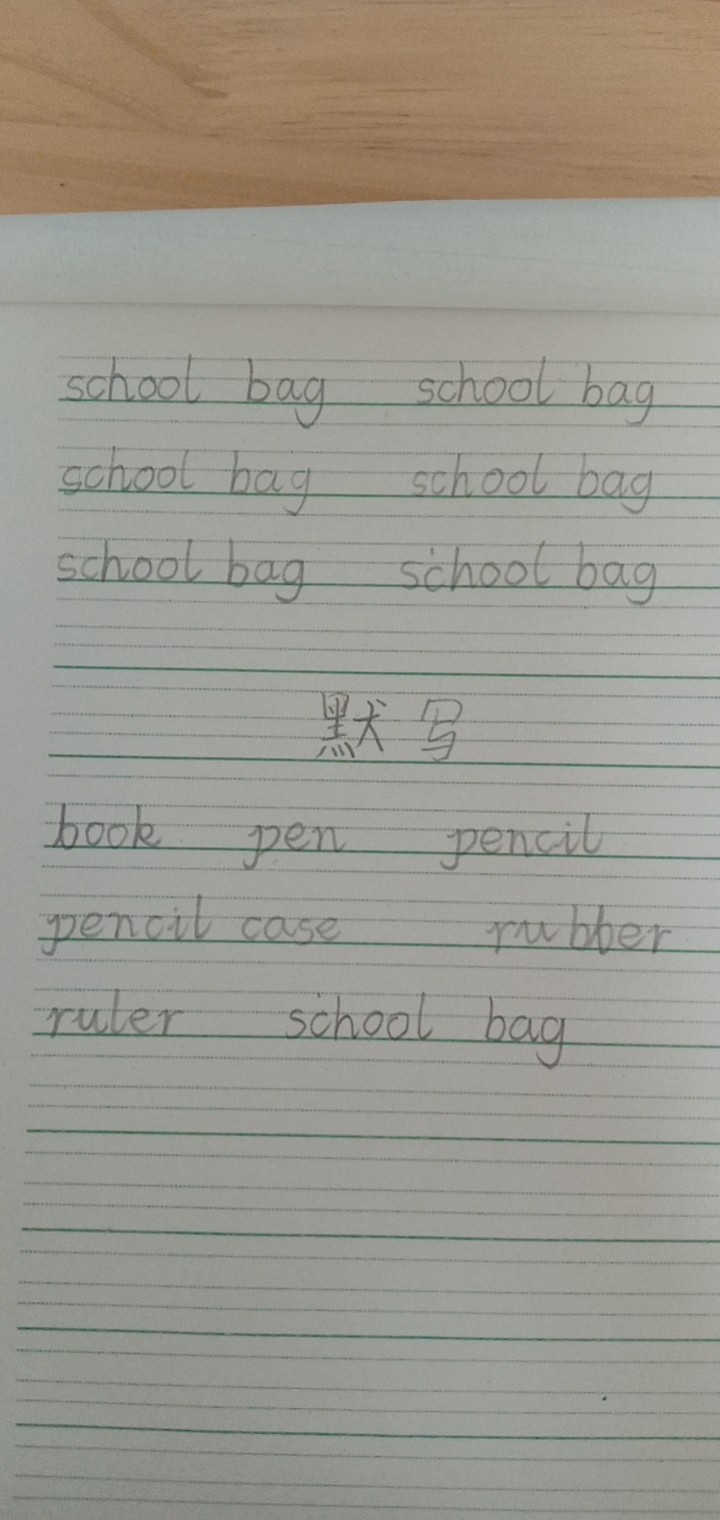 school bag school bag
school bag school bag
school bag school bag
默写
book pen pencil
pencil case rubber
ruler school bag